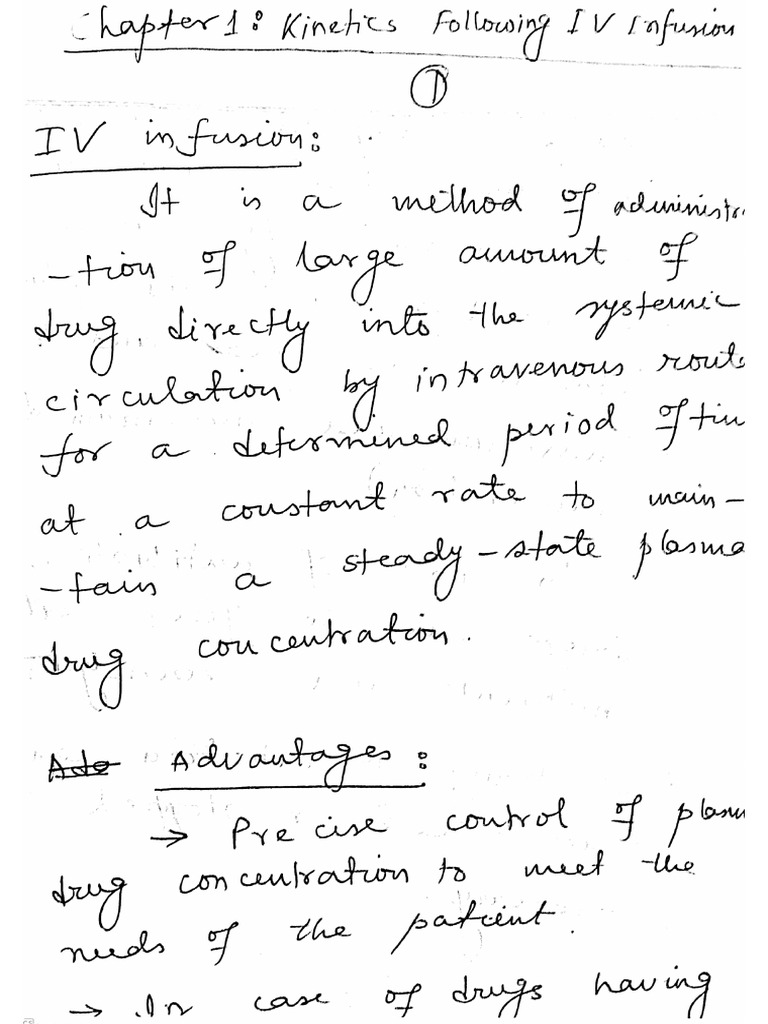 Chapter 1: Kinetics Following IV Infusion
1
IV infusion:
It is a method of administra
-tion of large amount of
drug directly into the systemic
circulation by intravenous route
for a determined period of tim
at a constant rate to main-
-tain a steady-state plasma
drug concentration.
Ade Advantages:
→ Precise control of plasm
drug concentration to meet the
needs of the patient.
→ In case of drugs having